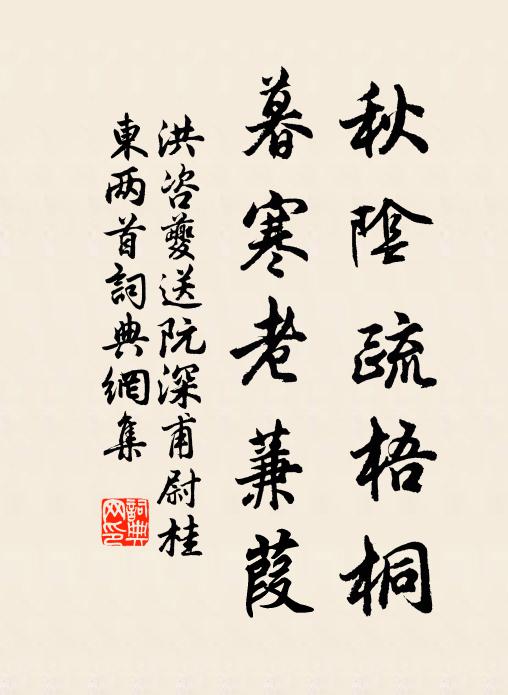 秋陰疏梧桐
暮寒老蒹葭
洪咨夔送阮深甫尉桂
東两首詞典網集
詞典
网印